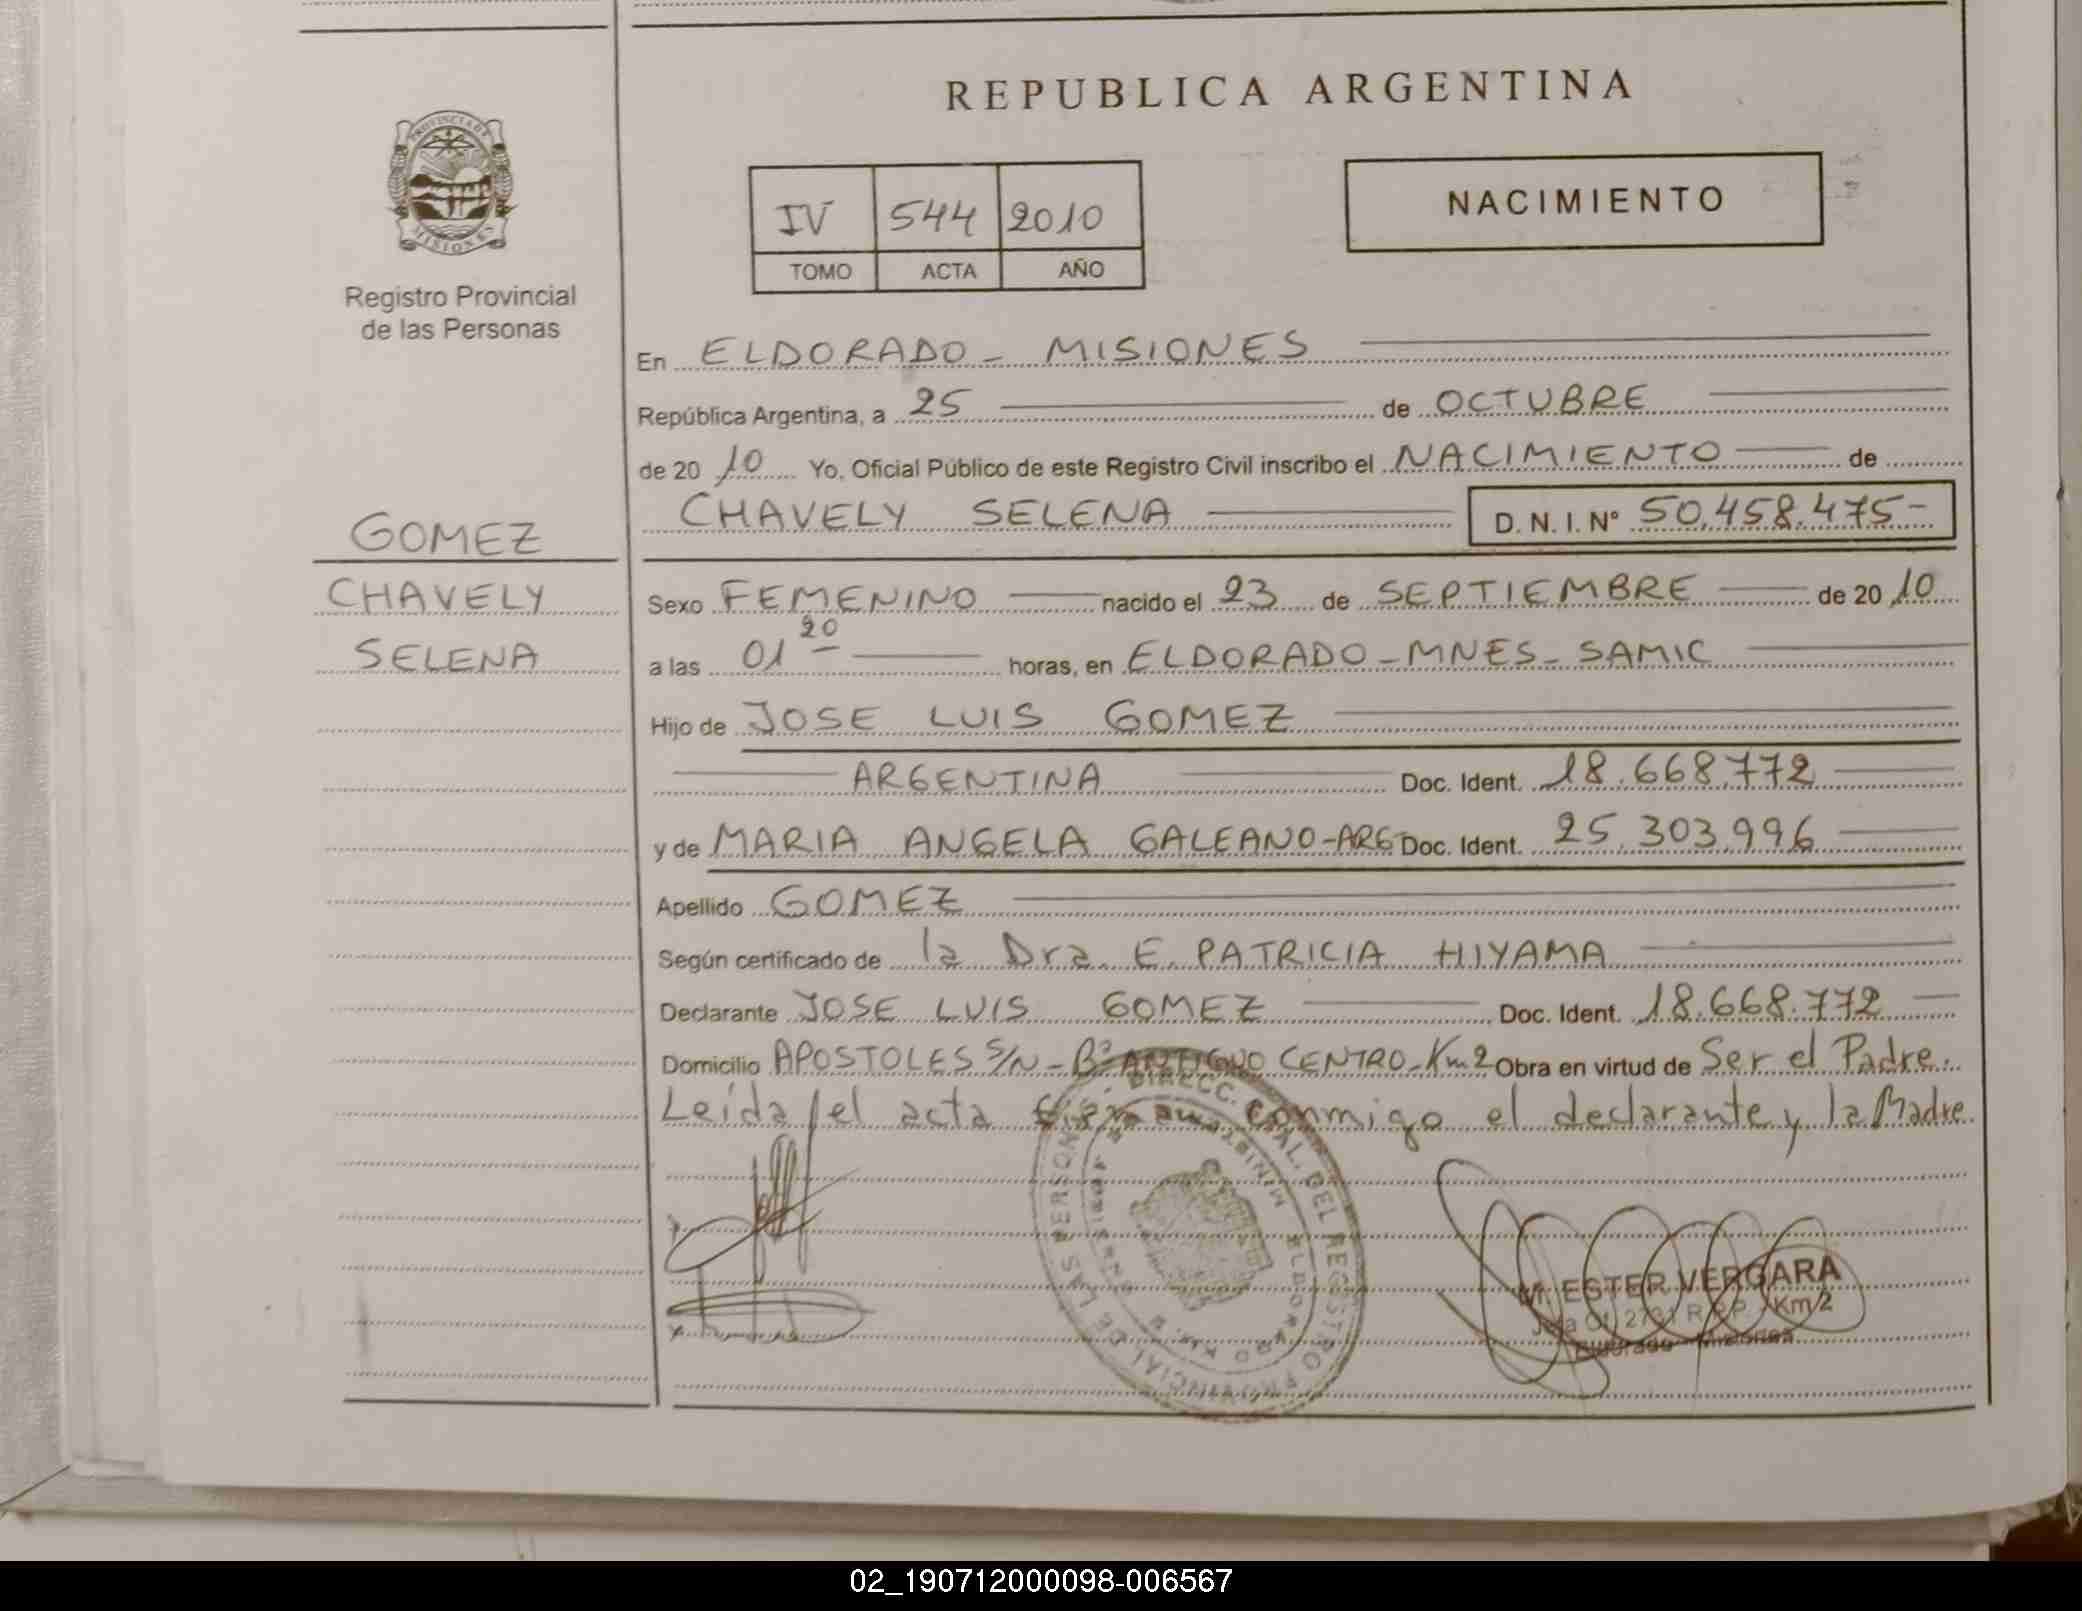 REPUBLICA ARGENTINA
PROVINCIA DE MISIONES
Registro Provincial
de las Personas
IV 544 2010
TOMO ACTA AÑO
NACIMIENTO
En ELDORADO - MISIONES
República Argentina, a 25 de OCTUBRE
de 20 10 Yo, Oficial Público de este Registro Civil inscribo el NACIMIENTO de
CHAVELY SELENA D. N. I. Nº 50.458.475-
GOMEZ
CHAVELY
SELENA
Sexo FEMENINO nacido el 23 de SEPTIEMBRE de 20 10
a las 01 20 horas, en ELDORADO-MNES-SAMIC
Hijo de JOSE LUIS GOMEZ
ARGENTINA Doc. Ident. 18.668.772
y de MARIA ANGELA GALEANO-ARG- Doc. Ident. 25.303.996
Apellido GOMEZ
Según certificado de la Dra. E. PATRICIA HIYAMA
Declarante JOSE LUIS GOMEZ Doc. Ident. 18.668.772
Domicilio APOSTOLES S/N - Bº ANTIGUO CENTRO-Km2 Obra en virtud de Ser el Padre.
Leída el acta conmigo el declarante y la Madre.
DIRECC. GRAL. DEL REGISTRO PROVINCIAL DE LAS PERSONAS
ELDORADO KM. 2
MISIONES
M. ESTER VERGARA
R.P.P. Km 2
Eldorado - Misiones
02_190712000098-006567